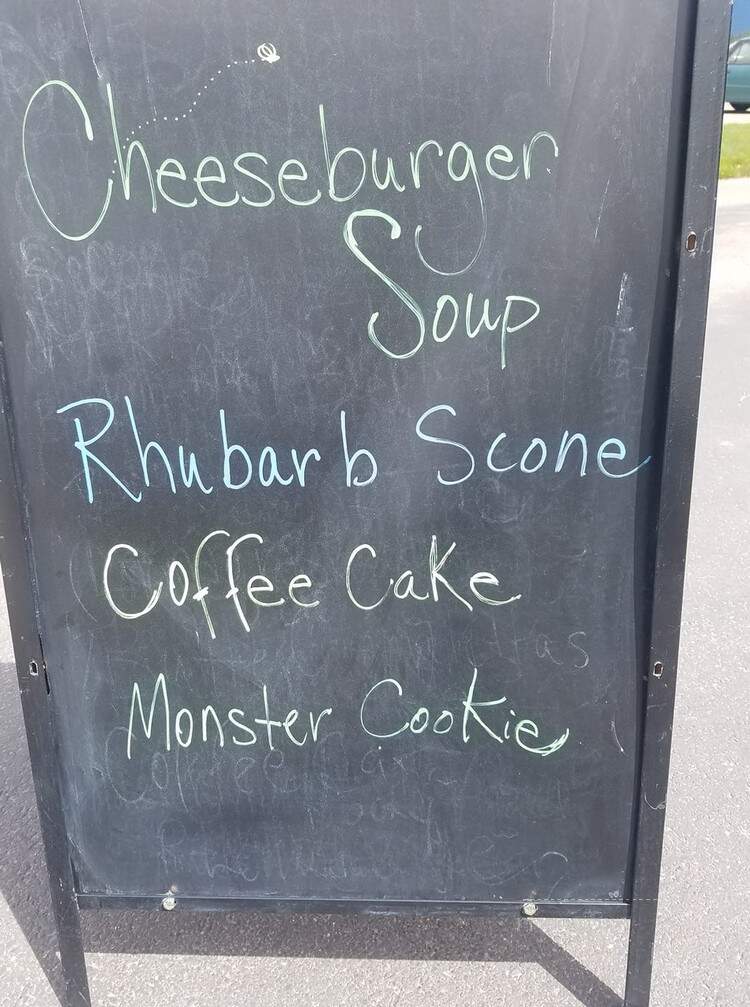 Cheeseburger
Soup
Rhubarb Scone
Coffee Cake
Monster Cookie